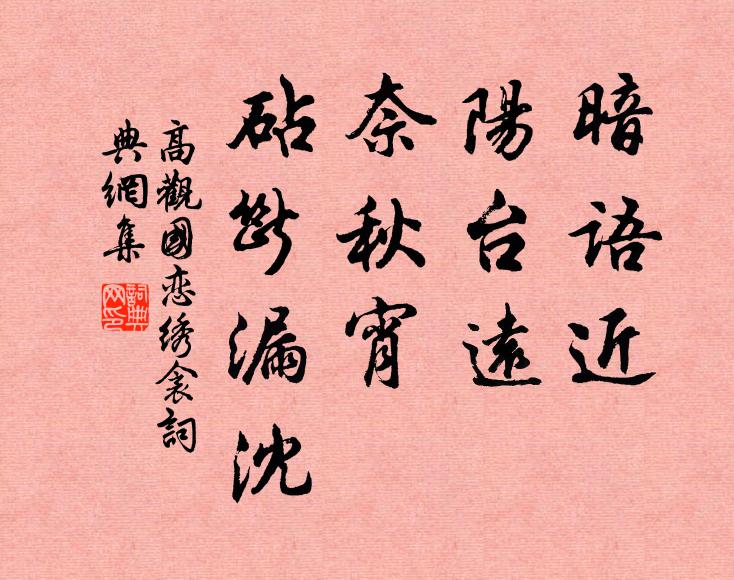 暗語近
陽台遠
奈秋宵
砧斷漏沈
高觀國恋绣衾詞
典網集
詞典网印